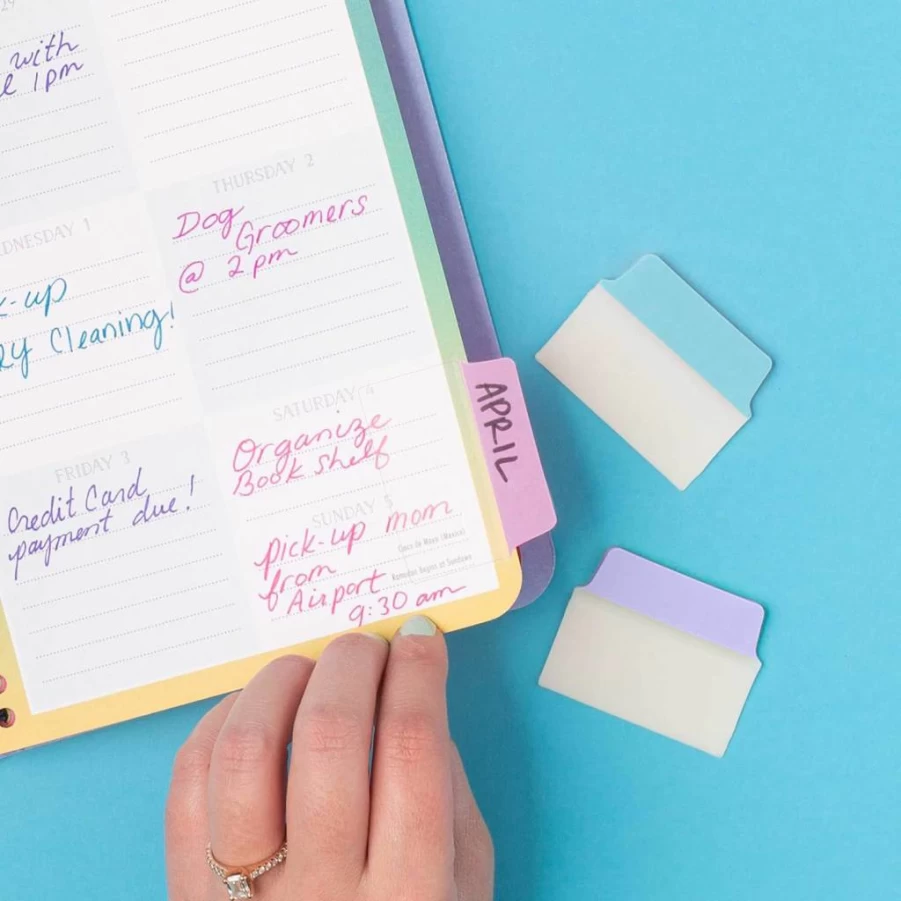 29
with
1pm
THURSDAY 2
Dog
Groomers
@ 2pm
WEDNESDAY 1
-up
Cleaning!
APRIL
SATURDAY 4
Organize
Book shelf
FRIDAY 3
Credit Card
payment due!
SUNDAY 5
pick-up mom
from
Airport
9:30 am
Cinco de Mayo (Mexico)
Ramadan Begins at Sundown